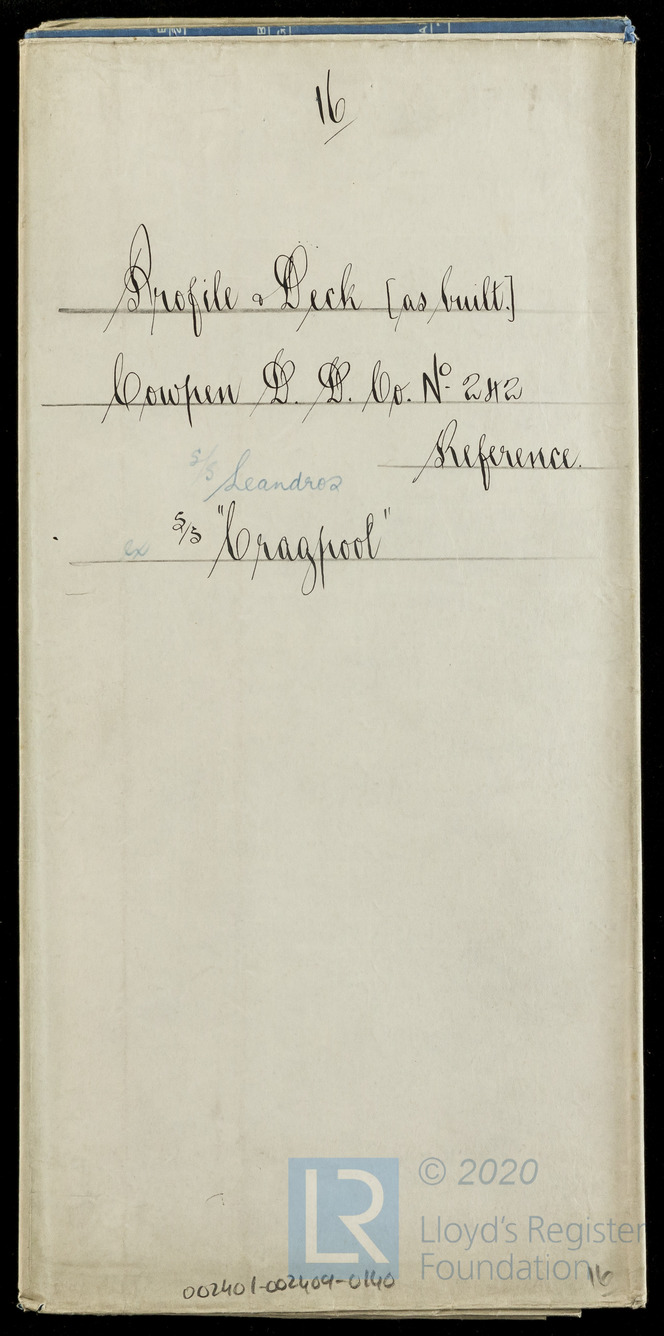 16
Profile & Deck [as built.]
Cowpen D. D. Co. No. 242
Reference.
S/S Leandros
ex S/S "Cragpool"
LR
© 2020
Lloyd's Register
Foundation
16
002401-002409-0140